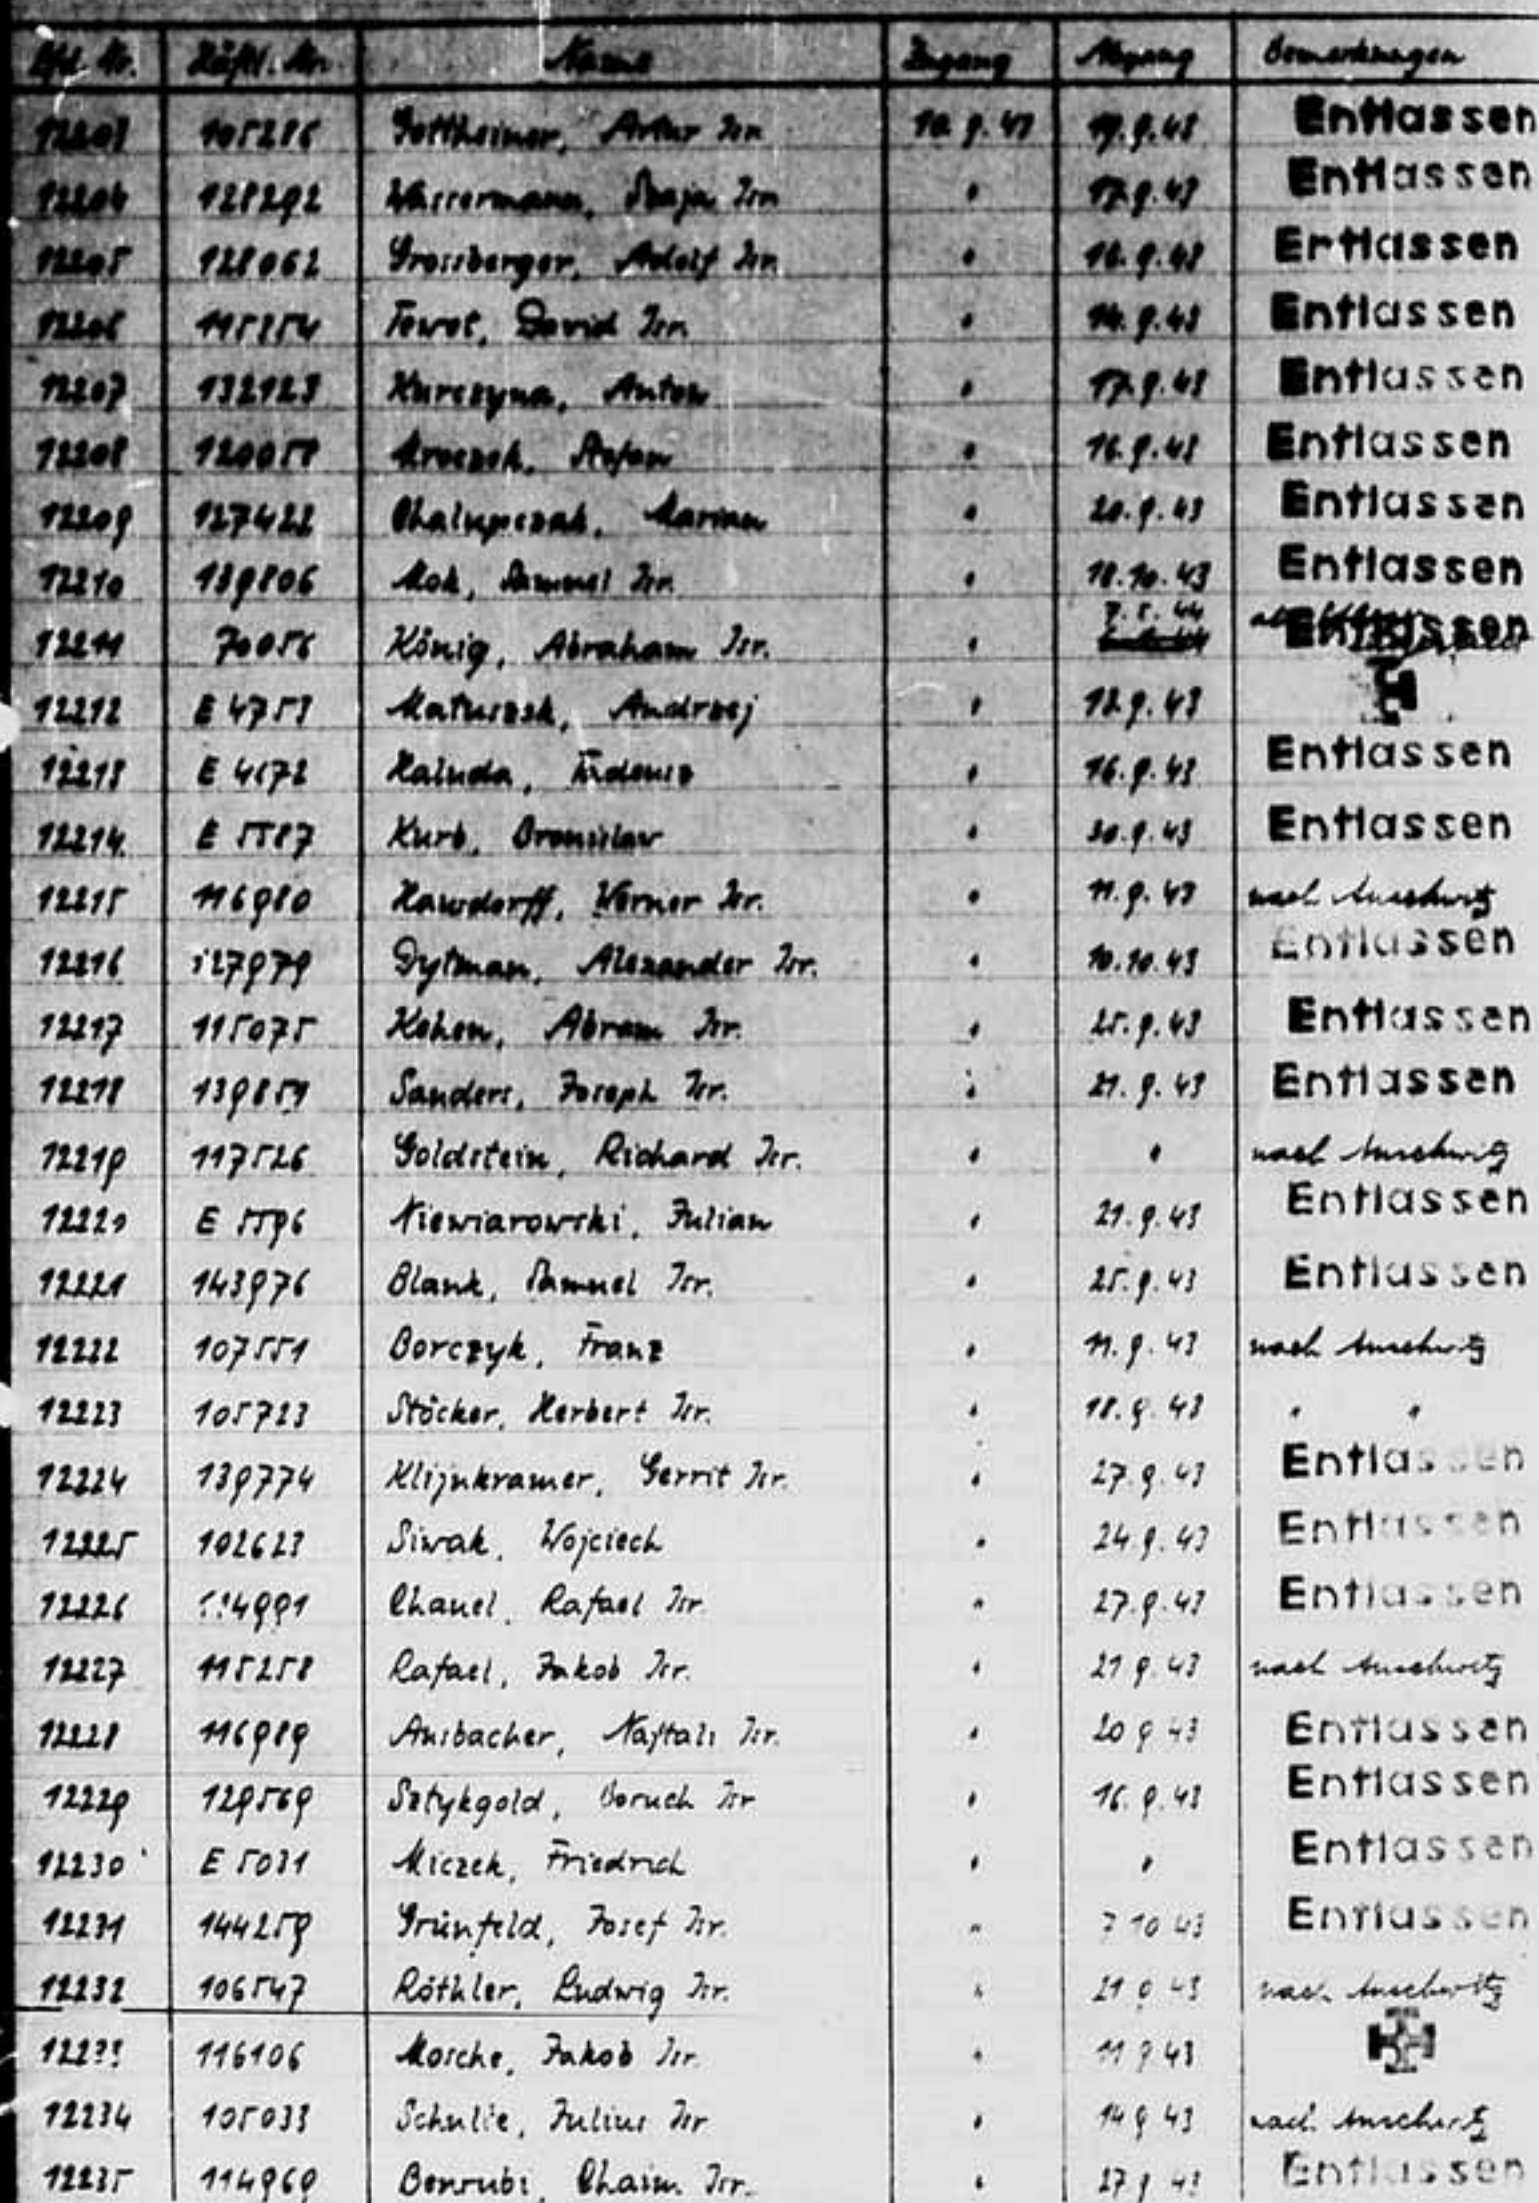 Lfd. Nr. Häftl. Nr. Name Zugang Abgang Bemerkungen
12203 105286 Gottheiner, Artur Isr. 10.9.43 19.9.43 Entlassen
12204 128292 Wassermann, Isr. " 17.9.43 Entlassen
12205 128062 Grossberger, Adolf Isr. " 16.9.43 Entlassen
12206 115354 David Isr. " 14.9.43 Entlassen
12207 132123 Kurczyna, Anton " 17.9.43 Entlassen
12208 Mroczek, Stefan " 16.9.43 Entlassen
12209 127422 Chalupczak, Marian " 20.9.43 Entlassen
12210 139806 Mok, Samuel Isr. " 18.10.43 Entlassen
12211 70056 König, Abraham Isr. " 7.5.44 Entlassen
12212 E 4753 Matuszek, Andrzej " 12.9.43
12213 E 4572 Haluda, " 16.9.43 Entlassen
12214 E 5587 Kurb, Bronislaw " 30.9.43 Entlassen
12215 116980 Werner Isr. " 11.9.43 nach Auschwitz
12216 127979 Dytman, Alexander Isr. " 10.10.43 Entlassen
12217 115075 Kohen, Abram Isr. " 25.9.43 Entlassen
12218 139859 Sanders, Joseph Isr. " 21.9.43 Entlassen
12219 117526 Goldstein, Richard Isr. " " nach Auschwitz
12220 E 5596 Niewiarowski, Julian " 21.9.43 Entlassen
12221 143976 Blank, Samuel Isr. " 25.9.43 Entlassen
12222 107551 Borczyk, Franz " 11.9.43 nach Auschwitz
12223 105723 Stöcker, Herbert Isr. " 18.9.43 " "
12224 139774 Klijnkramer, Gerrit Isr. " 27.9.43 Entlassen
12225 102623 Siwak, Wojciech " 24.9.43 Entlassen
12226 114991 Chanel, Rafael Isr. " 27.9.43 Entlassen
12227 115258 Rafael, Jakob Isr. " 21.9.43 nach Auschwitz
12228 116989 Ansbacher, Naftali Isr. " 20.9.43 Entlassen
12229 129569 Sztykgold, Boruch Isr. " 16.9.43 Entlassen
12230 E 5031 Miczek, Friedrich " " Entlassen
12231 144259 Grünfeld, Josef Isr. " 7.10.43 Entlassen
12232 106547 Röthler, Ludwig Isr. " 21.9.43 nach Auschwitz
12233 116106 Mosche, Jakob Isr. " 11.9.43
12234 105033 Julius Isr. " 14.9.43 nach Auschwitz
12235 114969 Benrubi, Chaim Isr. " 27.9.43 Entlassen